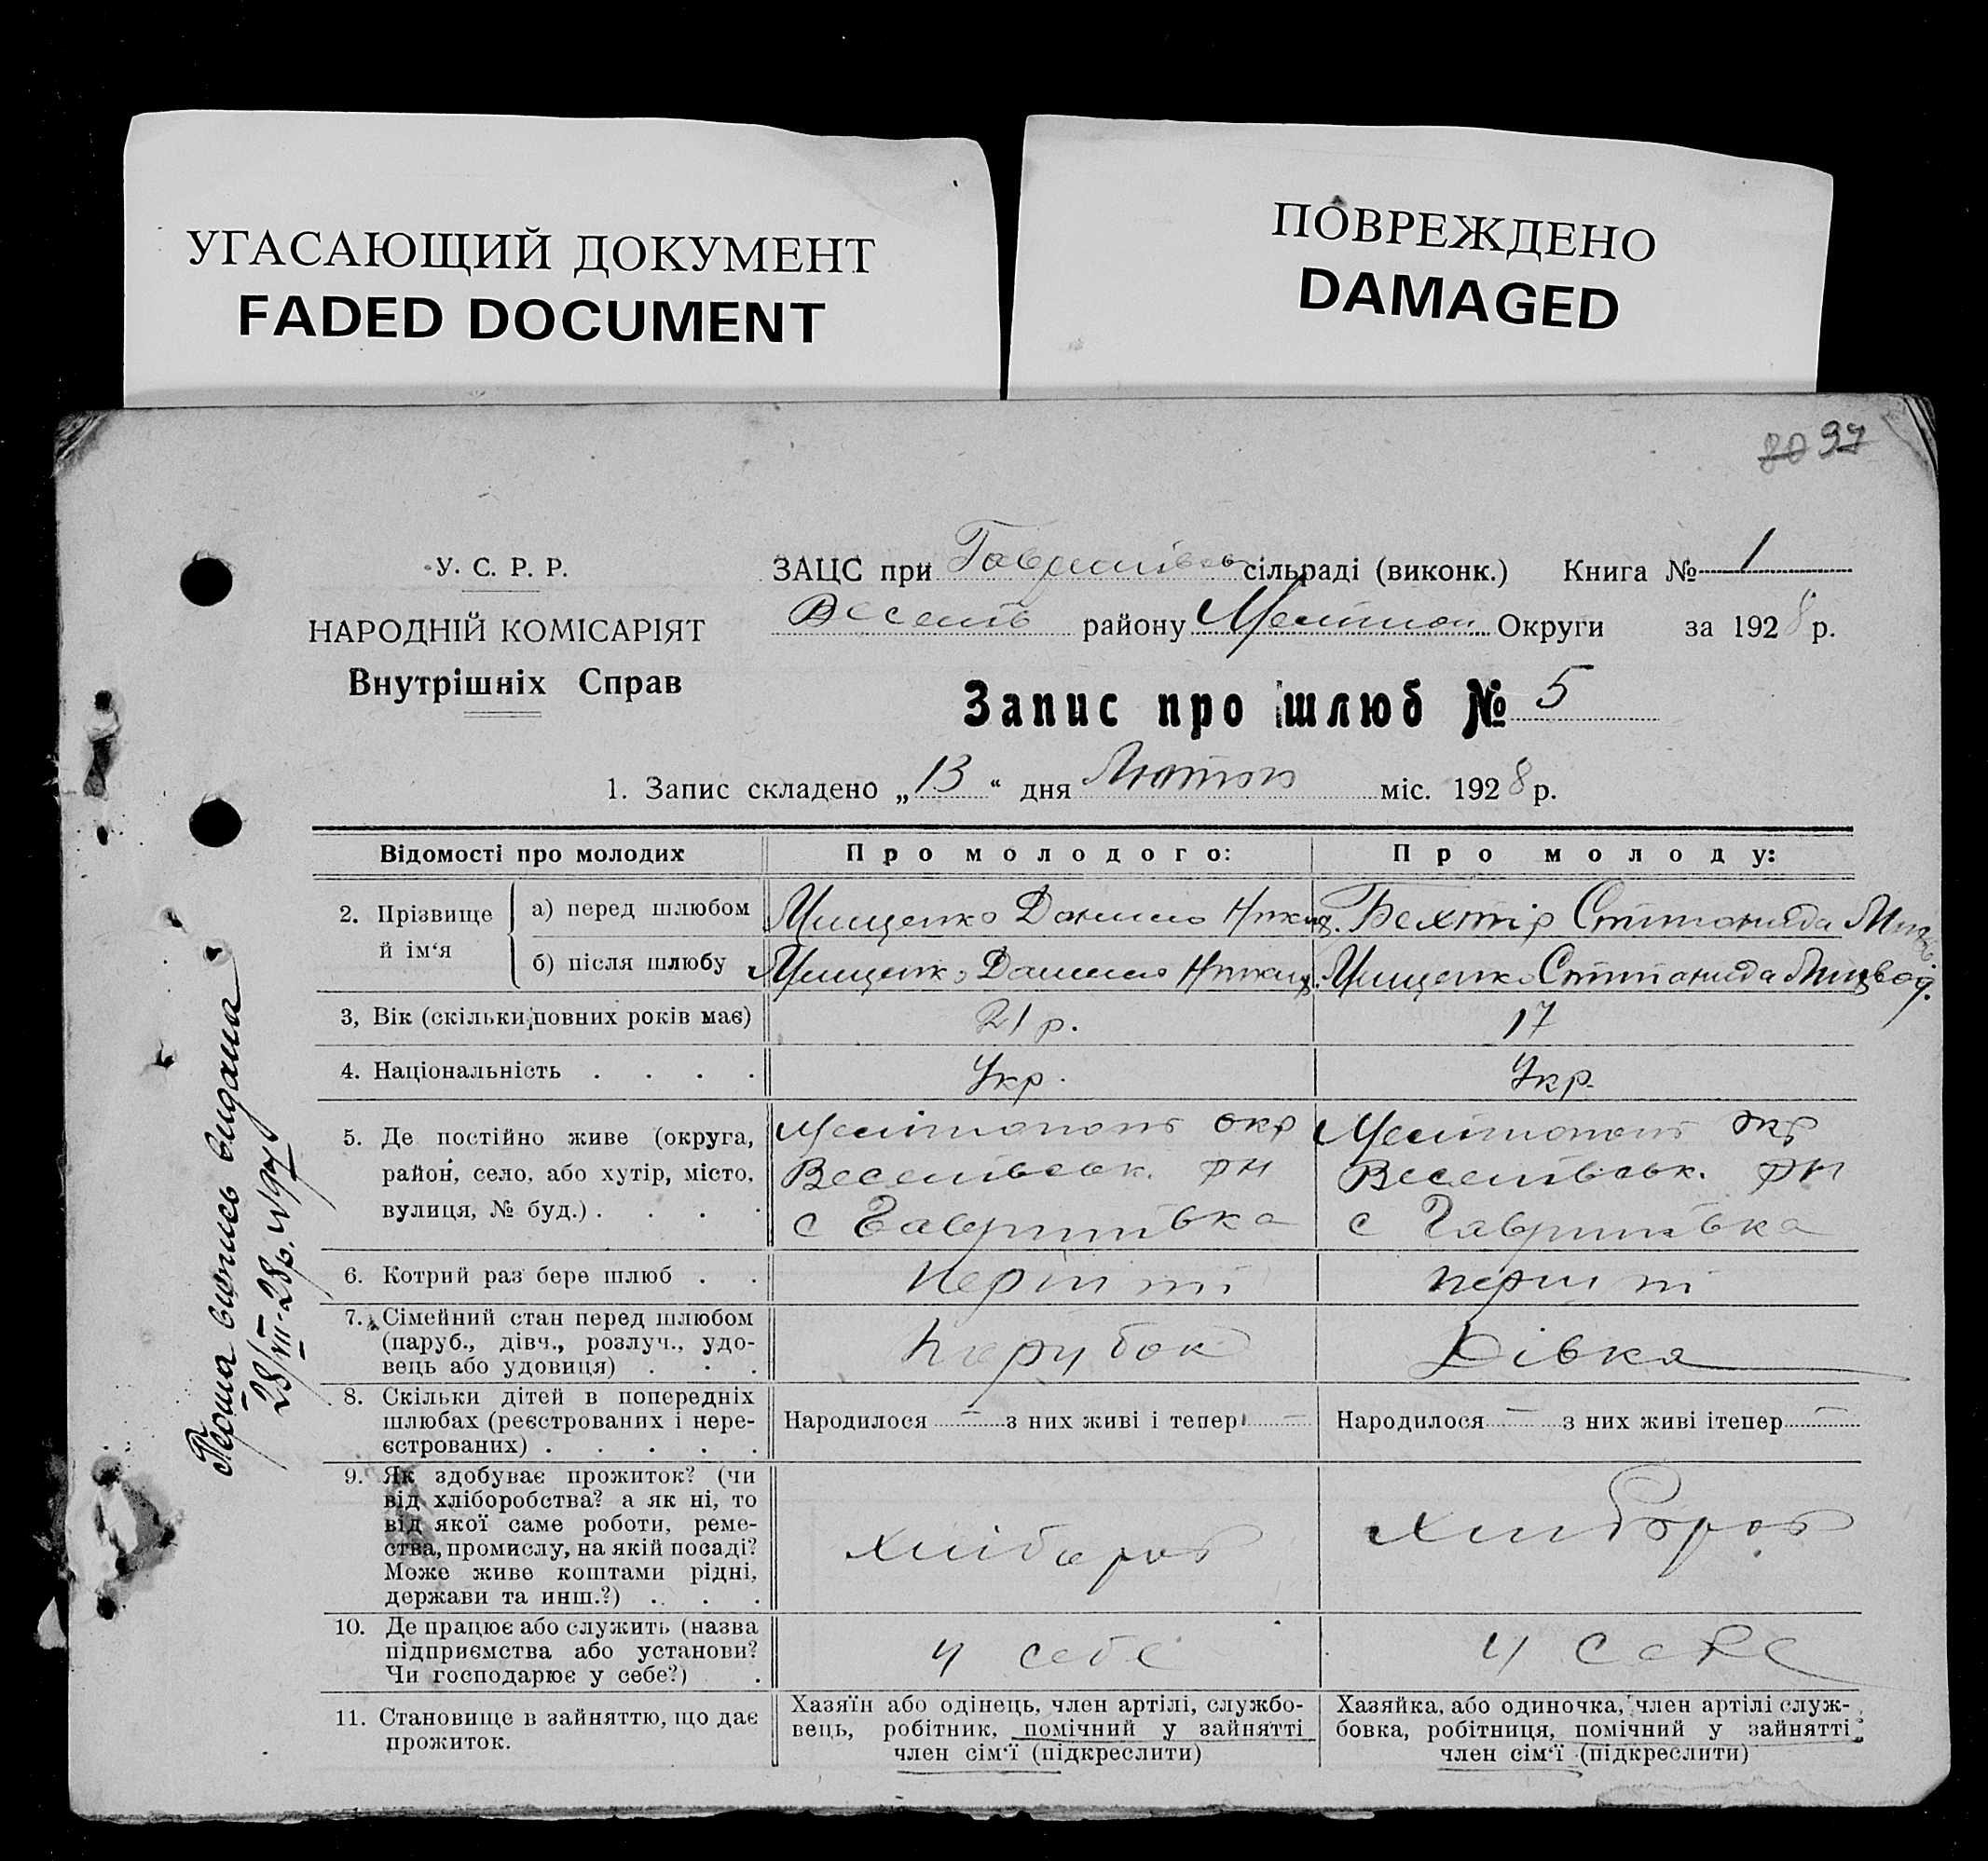 УГАСАЮЩИЙ ДОКУМЕНТ
FADED DOCUMENT
ПОВРЕЖДЕНО
DAMAGED
80 97
У. С. Р. Р.
НАРОДНІЙ КОМІСАРІЯТ
Внутрішніх Справ
ЗАЦС при сільраді (виконк.) Книга № 1
Весель району Мелітоп Округи за 1928 р.
Запис про шлюб № 5
1. Запис складено „13“ дня Лютого міс. 1928 р.
Відомості про молодих
Про молодого:
Про молоду:
2. Прізвище й ім‘я
а) перед шлюбом
Мищенко Данило Никид.
Бехтір Степанида
б) після шлюбу
Мищенко Данило Никид.
Мищенко Степанида
3, Вік (скільки повних років має)
21 р.
17
4. Національність . . . .
Укр.
Укр.
5. Де постійно живе (округа,
район, село, або хутір, місто,
вулиця, № буд.) . . . .
Мелітополь окр
Веселівськ. рн
с Гаврилівка
Мелітополь окр
Веселівськ. рн
с Гаврилівка
6. Котрий раз бере шлюб . .
перший
перший
7. Сімейний стан перед шлюбом
(паруб., дівч., розлуч., удо-
вець або удовиця) . . .
парубок
Дівка
8. Скільки дітей в попередніх
шлюбах (реєстрованих і нере-
єстрованих) . . . . .
Народилося — з них живі і тепер —
Народилося — з них живі ітепер —
9. Як здобуває прожиток? (чи
від хліборобства? а як ні, то
від якої саме роботи, реме-
ства, промислу, на якій посаді?
Може живе коштами рідні,
держави та инш.?) . . .
хлібороб
хлібороб
10. Де працює або служить (назва
підприємства або установи?
Чи господарює у себе?) .
у себе
у себе
11. Становище в зайняттю, що дає
прожиток.
Хазяїн або одінець, член артілі, службо-
вець, робітник, помічний у зайнятті
член сім‘ї (підкреслити)
Хазяйка, або одиночка, член артілі служ-
бовка, робітниця, помічний у зайнятті
член сім‘ї (підкреслити)
выпись выдана
28/VII-28р. №97